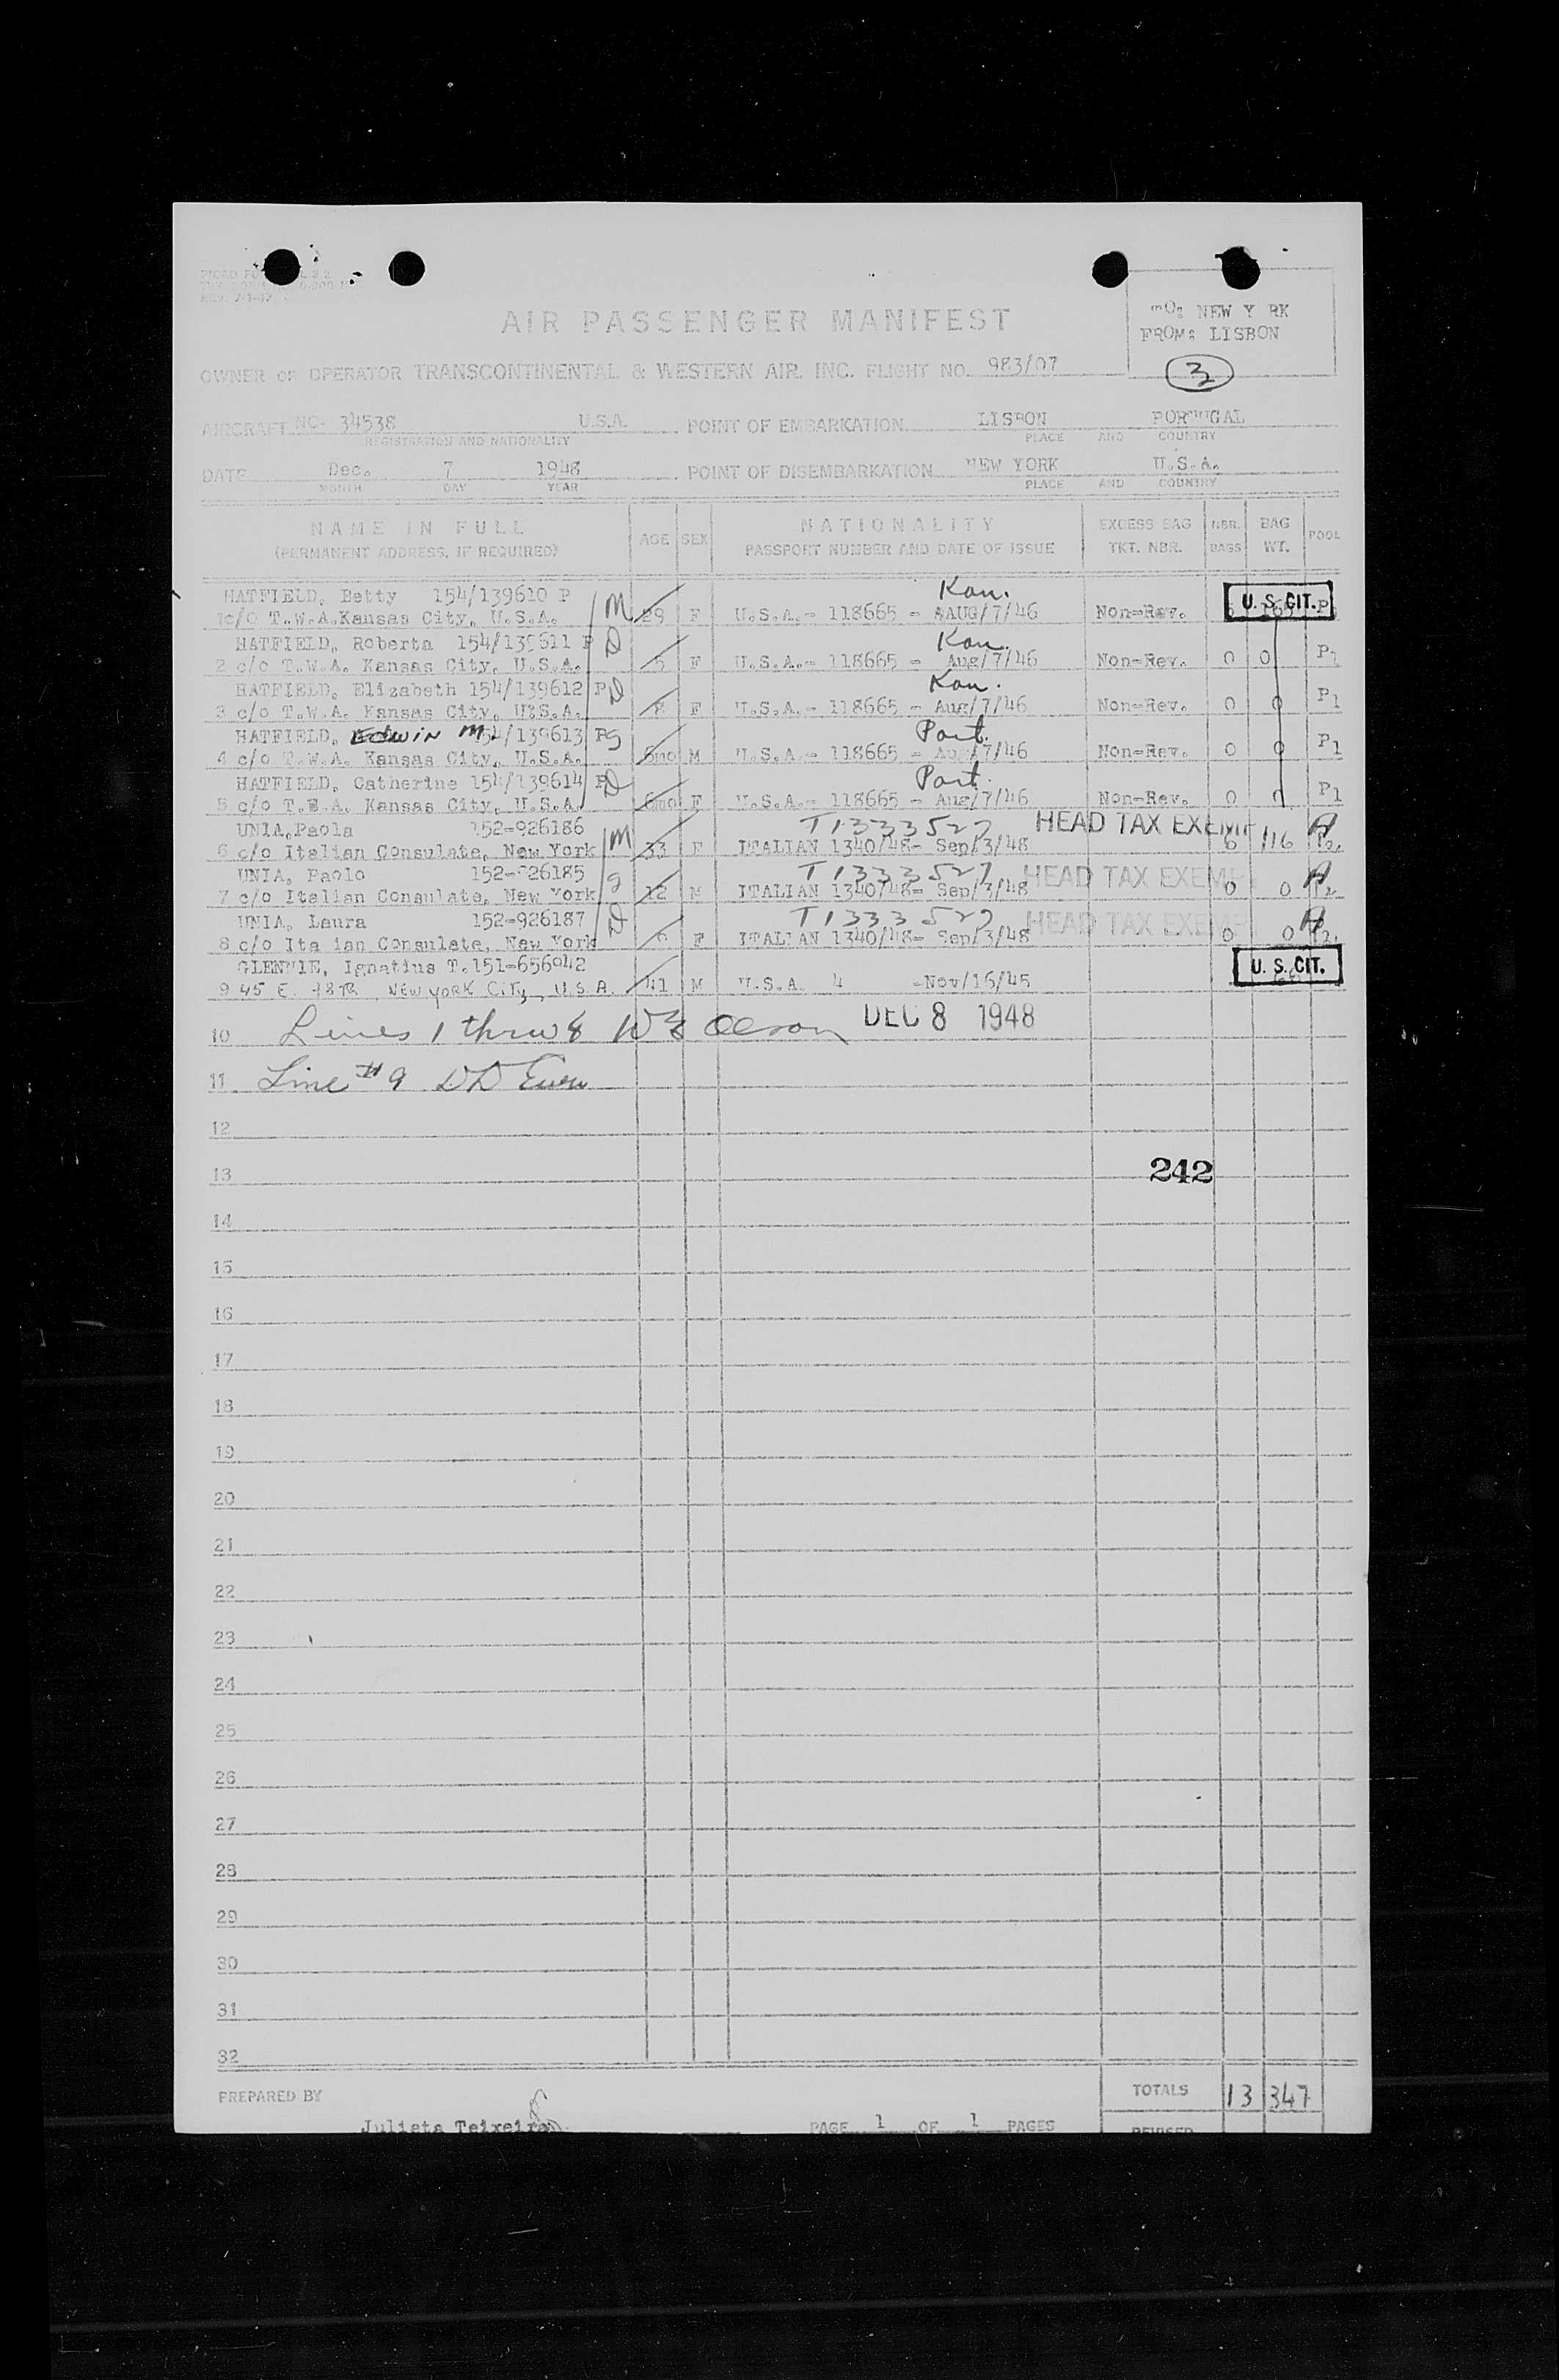 REV. 7-1-47
AIR PASSENGER MANIFEST
TO: NEW Y RK
FROM: LISBON
3
OWNER OR OPERATOR TRANSCONTINENTAL & WESTERN AIR, INC. FLIGHT NO. 983/07
AIRCRAFT NC- 34538 U.S.A. POINT OF EMBARKATION LISBON PORTUGAL
REGISTRATION AND NATIONALITY PLACE AND COUNTRY
DATE Dec. 7 1948 POINT OF DISEMBARKATION NEW YORK U.S.A.
MONTH DAY YEAR PLACE AND COUNTRY
NAME IN FULL AGE SEX NATIONALITY EXCESS BAG NBR. BAG POOL
(PERMANENT ADDRESS, IF REQUIRED) PASSPORT NUMBER AND DATE OF ISSUE TKT. NBR. BAGS WT.
HATFIELD, Betty 154/139610 P M Kan. U.S. CIT.
1c/o T.W.A.Kansas City, U.S.A. 29 F U.S.A.- 118665 - AUG/7/46 Non-Rev.
HATFIELD, Roberta 154/139611 P D Kan.
2 c/o T.W.A. Kansas City, U.S.A. 5 F U.S.A.- 118665 - Aug/7/46 Non-Rev. 0 0 P1
HATFIELD, Elizabeth 154/139612 P D Kan.
3 c/o T.W.A. Kansas City, U.S.A. 8 F U.S.A.- 118665 - Aug/7/46 Non-Rev. 0 0 P1
HATFIELD, Edwin M. 154/139613 P S Port.
4 c/o T.W.A. Kansas City, U.S.A. 6mo M U.S.A.- 118665 - Aug/7/46 Non-Rev. 0 0 P1
HATFIELD, Catherine 154/139614 P D Port.
5 c/o T.W.A. Kansas City, U.S.A. 6mo F U.S.A.- 118665 - Aug/7/46 Non-Rev. 0 0 P1
UNIA,Paola 152-926186 M T1333527 HEAD TAX EXEMPT
6 c/o Italian Consulate, New York 33 F ITALIAN 1340/48- Sep/3/48 6 116 P2
UNIA, Paolo 152-926185 S T1333527 HEAD TAX EXEMPT
7 c/o Italian Consulate, New York 12 M ITALIAN 1340/48- Sep/3/48 0 0 P2
UNIA, Laura 152-926187 D T1333527 HEAD TAX EXEMPT
8 c/o Ita ian Consulate, New York 6 F ITALIAN 1340/48- Sep/3/48 0 0 P2
GLENNIE, Ignatius T.151-656942 U.S. CIT.
9 45 E. 78TH, NEW YORK CITY, U.S.A. 41 M U.S.A. 4 -Nov/16/45
10 Lines 1 thru 8 Olson DEC 8 1948
11 Line #9 DD
12
13 242
14
15
16
17
18
19
20
21
22
23
24
25
26
27
28
29
30
31
32
PREPARED BY TOTALS 13 347
Julieta Teixeira PAGE 1 OF 1 PAGES REVISED